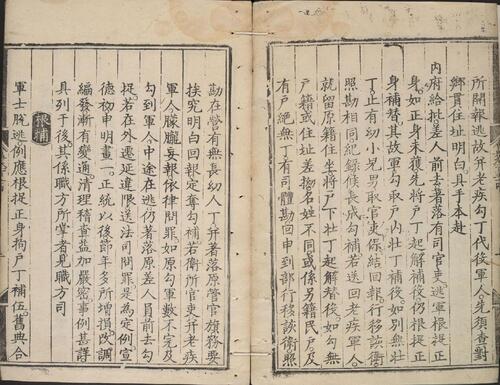 所開報逃故并老疾勾丁代役軍人先須查對
鄉貫住址明白具手本赴
内府給批差人前去著落有司官吏逃軍根捉正
身如正身未獲先將戶丁起解補役仍根捉正
身補替其故軍勾取戶内壯丁補役如別無壯
丁止有幼小兒男取官吏保結回報行移該衛
照勘相同紀録候長成勾補若送回老疾軍人
就留原籍住坐將戶下壯丁起解替役如勾無
戶籍或住址差拗名姓不同或係另籍民戶及
有戶絕無丁有司體勘回申到部行移該衛照
勘在營有無長幼人丁并著落原管官旗務要
挨究明白回報定奪勾補若衛所官吏并老疾
軍人朦朧妄報依律問罪如原勾軍數不完及
勾到軍人中途在逃仍著落原差人員前去勾
捉若在外遷延違限送法司問罪是為定例宣
德初申明畫一正統以後節年多所增損改調
編發漸有變通清理稽查益加嚴密事例甚詳
具列于後其係職方所掌者見職方司
根補
軍士脫逃例應根捉正身拘戶丁補伍舊典合